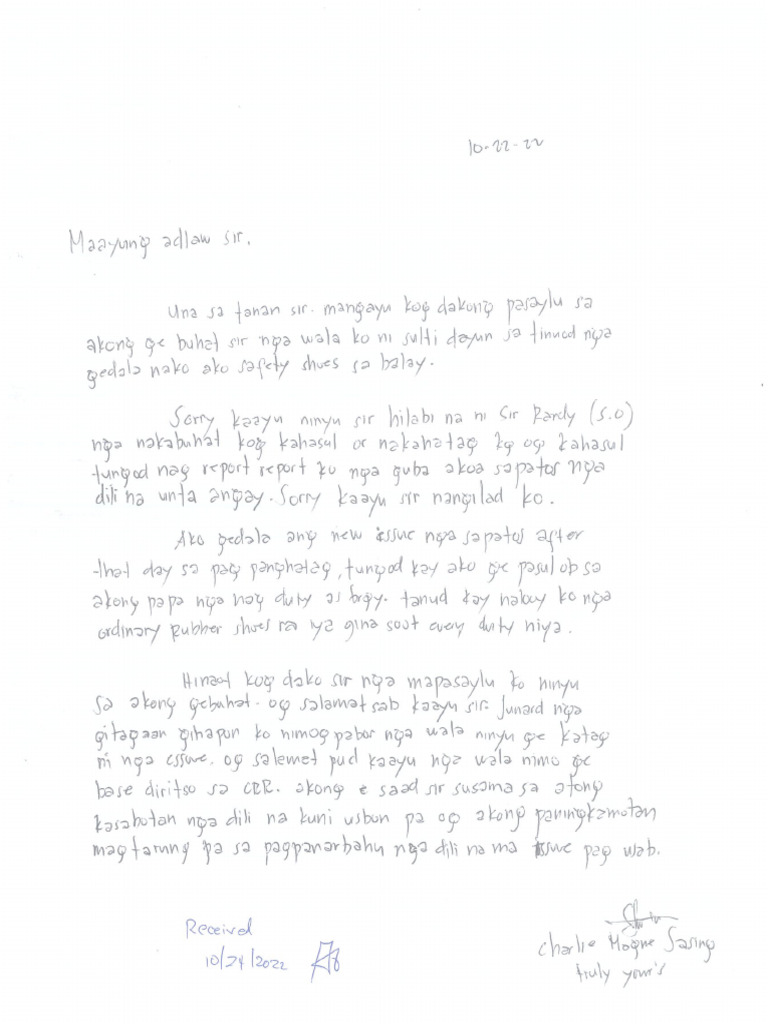 10-22-22
Maayung adlaw sir.
Una sa tanan sir. mangayu kog dakong pasaylu sa
akong ge buhat sir nga wala ko ni sulti dayun sa tinuod nga
gedala nako ako safety shoes sa balay.
Sorry kaayu ninyu sir hilabi na ni Sir Randy (S.O)
nga nakabuhat kog kahasul or nakahatag kog og kahasul
tungod nag report report ko nga guba akoa sapatos nga
dili na unta angay. Sorry kaayu sir nangilad ko.
Ako gedala ang new issue nga sapatos after
that day sa pag panghatag, tungod kay ako ge pasulob sa
akong papa nga nag duty as brgy. tanud kay naluoy ko nga
ordinary Rubber shoes ra iya gina soot every duty niya.
Hinaot kog dako sir nga mapasaylu ko ninyu
sa akong gebuhat. og salamat sab kaayu sir. Junard nga
gitagaan gihapun ko nimog pabor nga wala ninyu ge katag
ni nga essue, og salemet pud kaayu nga wala nimo ge
base diritso sa CBR. akong e saad sir susama sa atong
kasabotan nga dili na kuni usbon pa og akong paningkamotan
magtarung pa sa pagpanarbahu nga dili na ma issue pag usab.
Received
10/24/2022
Charlie Sasing
truly your's